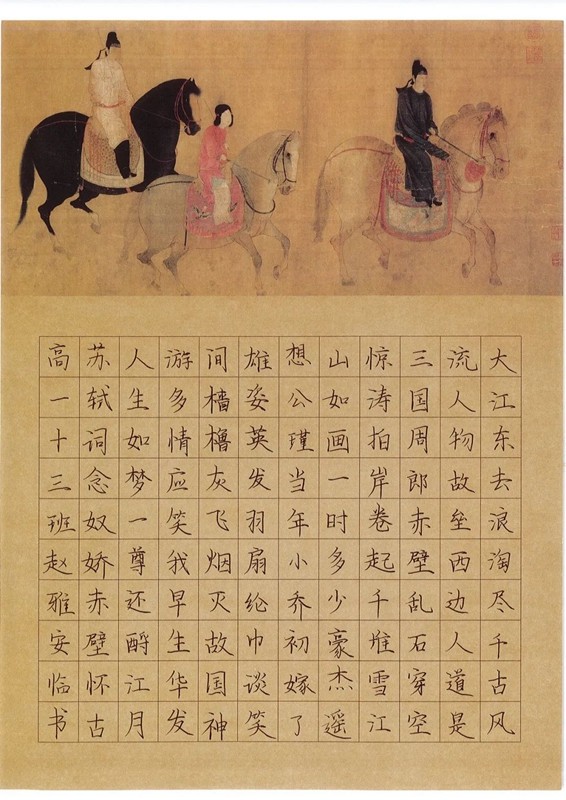 大江东去浪淘尽千古风
流人物故垒西边人道是
三国周郎赤壁乱石穿空
惊涛拍岸卷起千堆雪江
山如画一时多少豪杰遥
想公瑾当年小乔初嫁了
雄姿英发羽扇纶巾谈笑
间樯橹灰飞烟灭故国神
游多情应笑我早生华发
人生如梦一尊还酹江月
苏轼词念奴娇赤壁怀古
高一十三班赵雅安临书